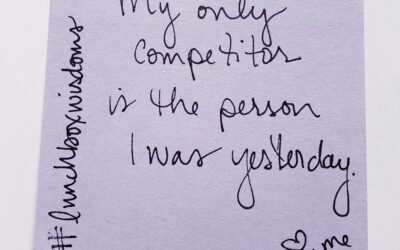 My only
competitor
is the person
I was yesterday.
♡, me
#lunchboxwisdoms